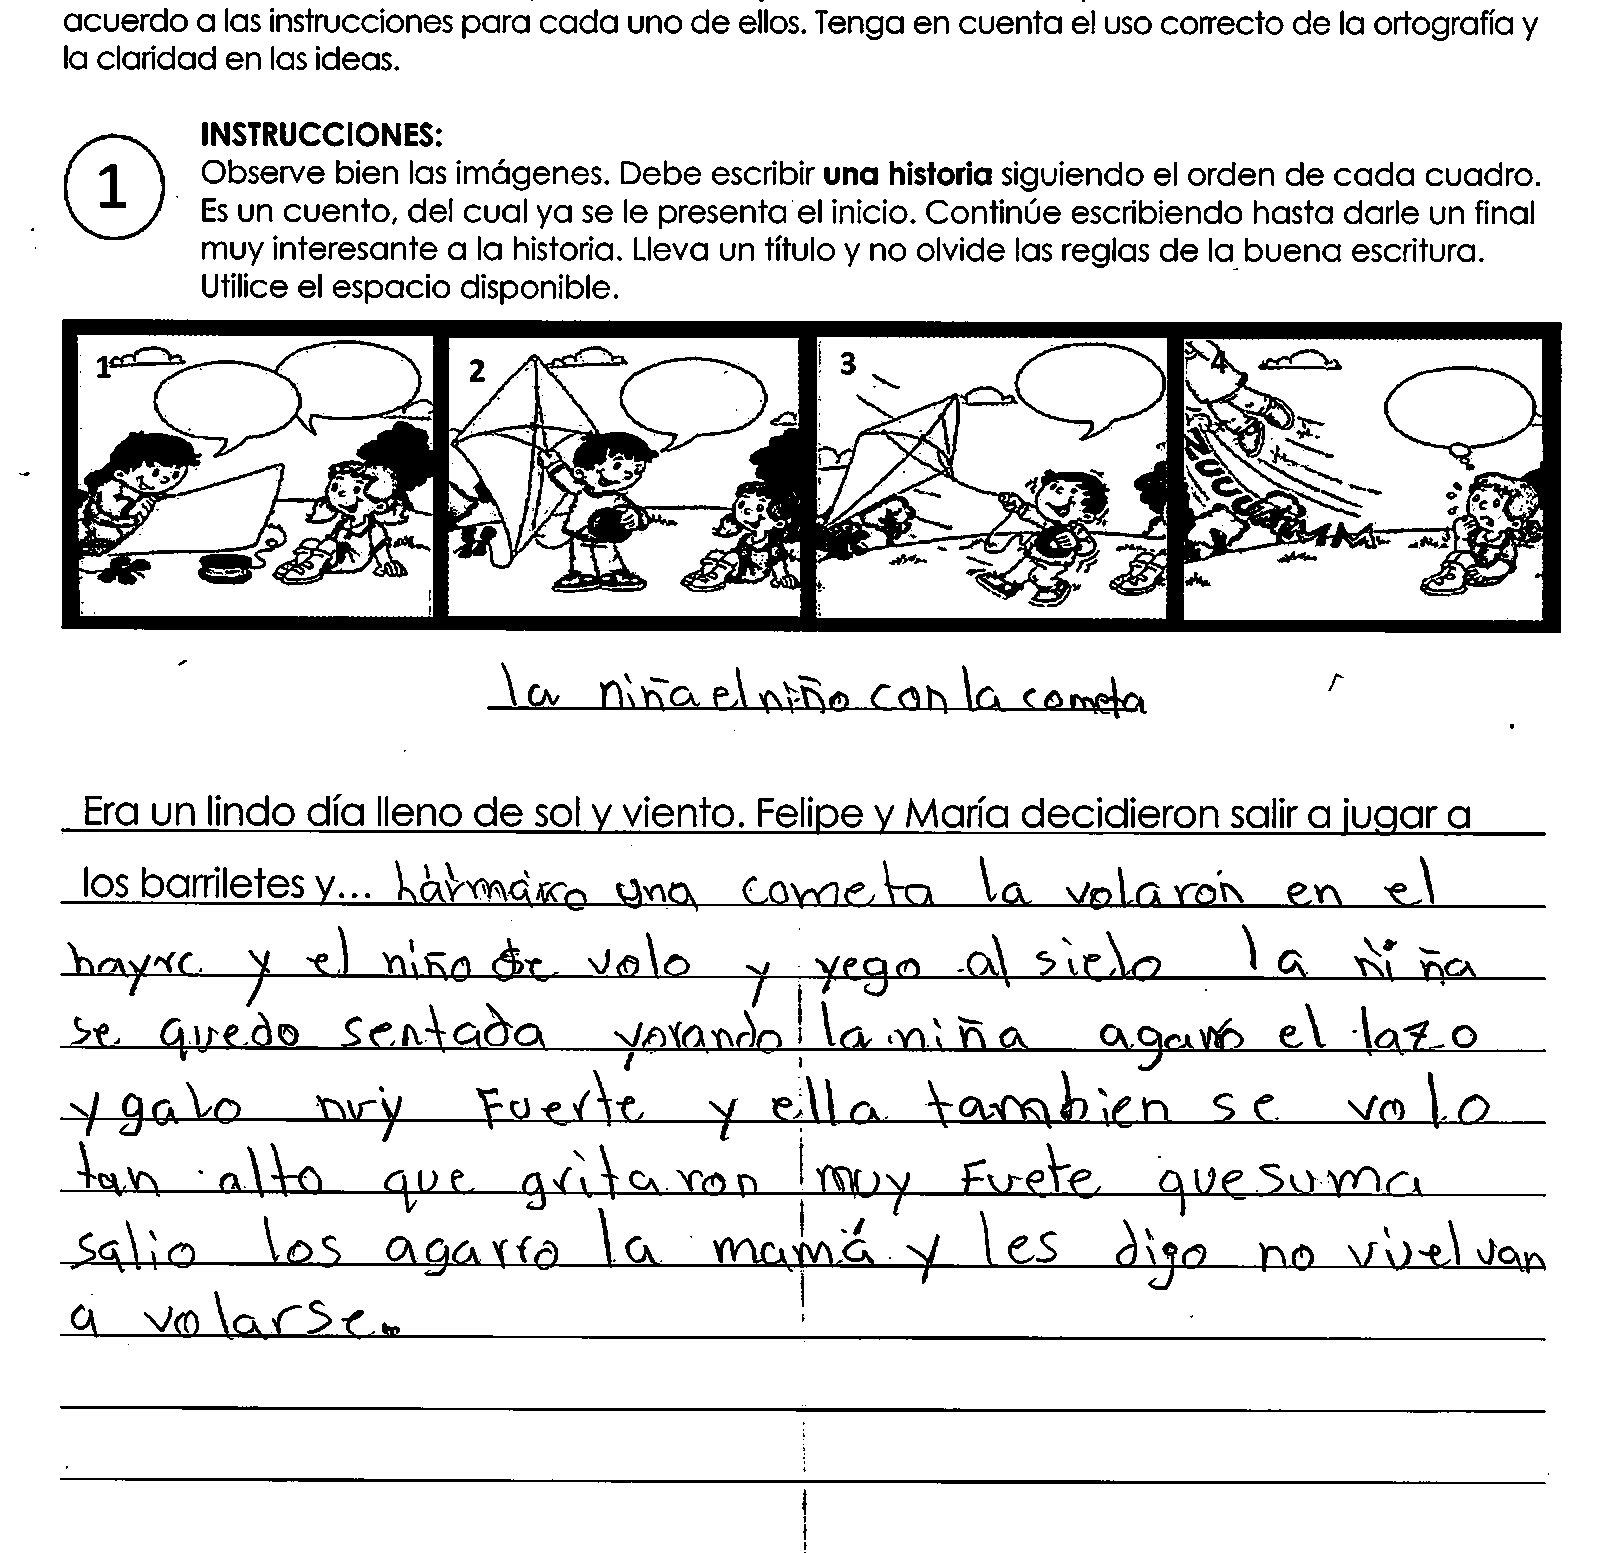 acuerdo a las instrucciones para cada uno de ellos. Tenga en cuenta el uso correcto de la ortografía y
la claridad en las ideas.
1
INSTRUCCIONES:
Observe bien las imágenes. Debe escribir una historia siguiendo el orden de cada cuadro.
Es un cuento, del cual ya se le presenta el inicio. Continúe escribiendo hasta darle un final
muy interesante a la historia. Lleva un título y no olvide las reglas de la buena escritura.
Utilice el espacio disponible.
1 2 3 4
la niña el niño con la cometa
Era un lindo día lleno de sol y viento. Felipe y María decidieron salir a jugar a
los barriletes y... una cometa la volaron en el
hayre y el niño se volo y yego al sielo la niña
se quedo sentada yorando la niña agarro el lazo
y galo muy Fuerte y ella tambien se volo
tan alto que gritaron muy Fuete que suma
salio los agarro la mamá y les digo no vuelvan
a volarse.